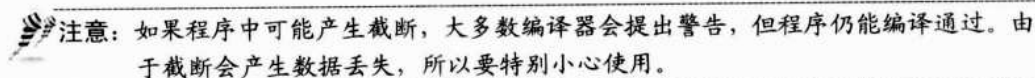 注意：如果程序中可能产生截断，大多数编译器会提出警告，但程序仍能编译通过。由
于截断会产生数据丢失，所以要特别小心使用。